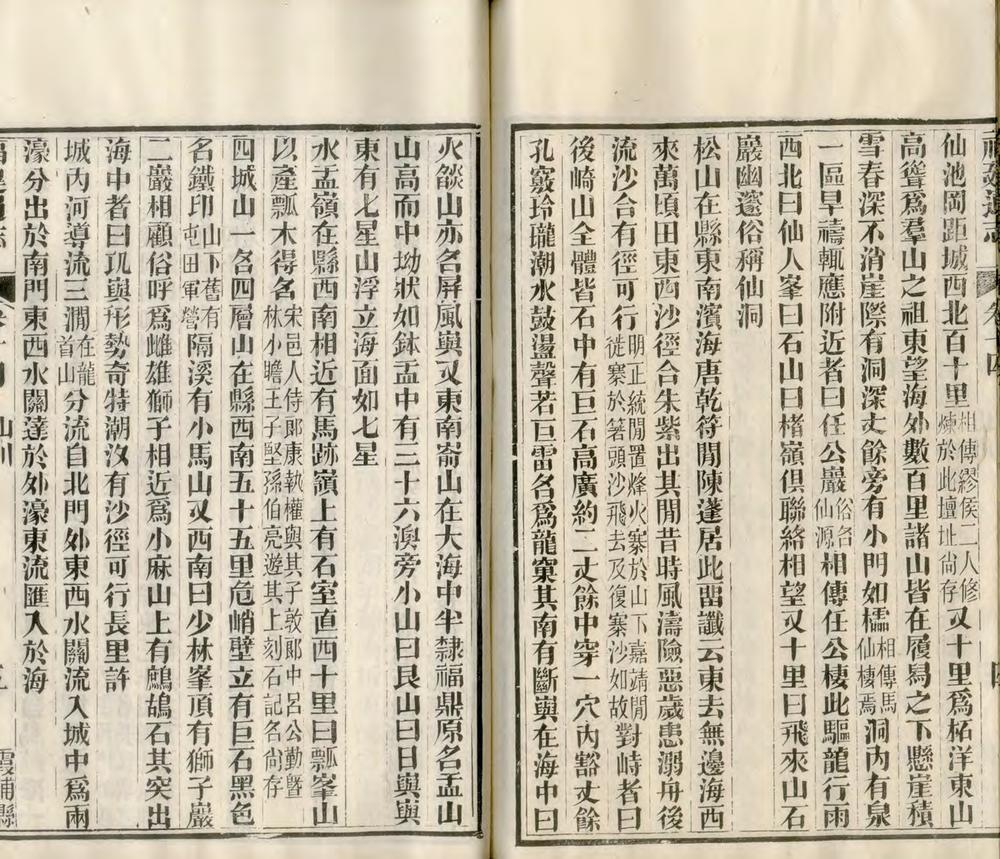 仙池岡距城西北百十里相傳繆侯二人修煉於此壇址尙存又十里爲柘洋東山
高聳爲羣山之祖東望海外數百里諸山皆在履舄之下懸崖積
雪春深不消崖際有洞深丈餘旁有小門如櫺相傳馬仙棲焉洞內有泉
一區旱禱輒應附近者曰任公巖俗名仙源相傳任公棲此驅龍行雨
西北曰仙人峯曰石山曰楮嶺俱聯絡相望又十里曰飛來山石
巖幽邃俗稱仙洞
松山在縣東南濱海唐乾符閒陳蓬居此畱讖云東去無邊海西
來萬頃田東西沙徑合朱紫出其閒昔時風濤險惡歲患溺舟後
流沙合有徑可行明正統閒置烽火寨於山下嘉靖閒徙寨於箬頭沙飛去及復寨沙如故對峙者曰
後崎山全體皆石中有巨石高廣約二丈餘中穿一穴內豁丈餘
孔竅玲瓏潮水鼓盪聲若巨雷名爲龍窠其南有斷嶼在海中曰
火燄山亦名屏風嶼又東南嵛山在大海中半隸福鼎原名盂山
山高而中坳狀如鉢盂中有三十六澳旁小山曰艮山曰日嶼嶼
東有七星山浮立海面如七星
水盂嶺在縣西南相近有馬跡嶺上有石室直西十里曰瓢峯山
以產瓢木得名宋邑人侍郞康執權與其子敦郞中呂公勤曁林小瞻王子堅孫伯亮遊其上刻石記名尙存
四城山一名四層山在縣西南五十五里危峭壁立有巨石黑色
名鐵印山下舊有屯田軍營隔溪有小馬山又西南曰少林峯頂有獅子巖
二巖相顧俗呼爲雌雄獅子相近爲小麻山上有鷓鴣石其突出
海中者曰㺬嶼形勢奇特潮汐有沙徑可行長里許
城內河導流三澗在龍首山分流自北門外東西水關流入城中爲兩
濠分出於南門東西水關達於外濠東流匯入於海
山川
霞浦縣